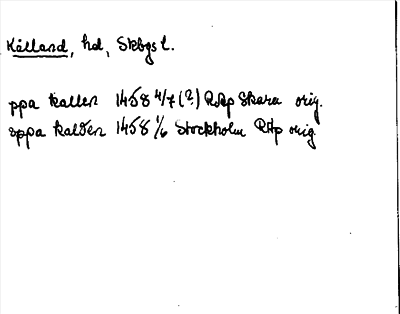 Kålland, hd, Skbgs l.
ppa kallen 1458 4/7 (?) RAp Skara orig.
oppa kalden 1458 1/6 Stockholm RAp orig